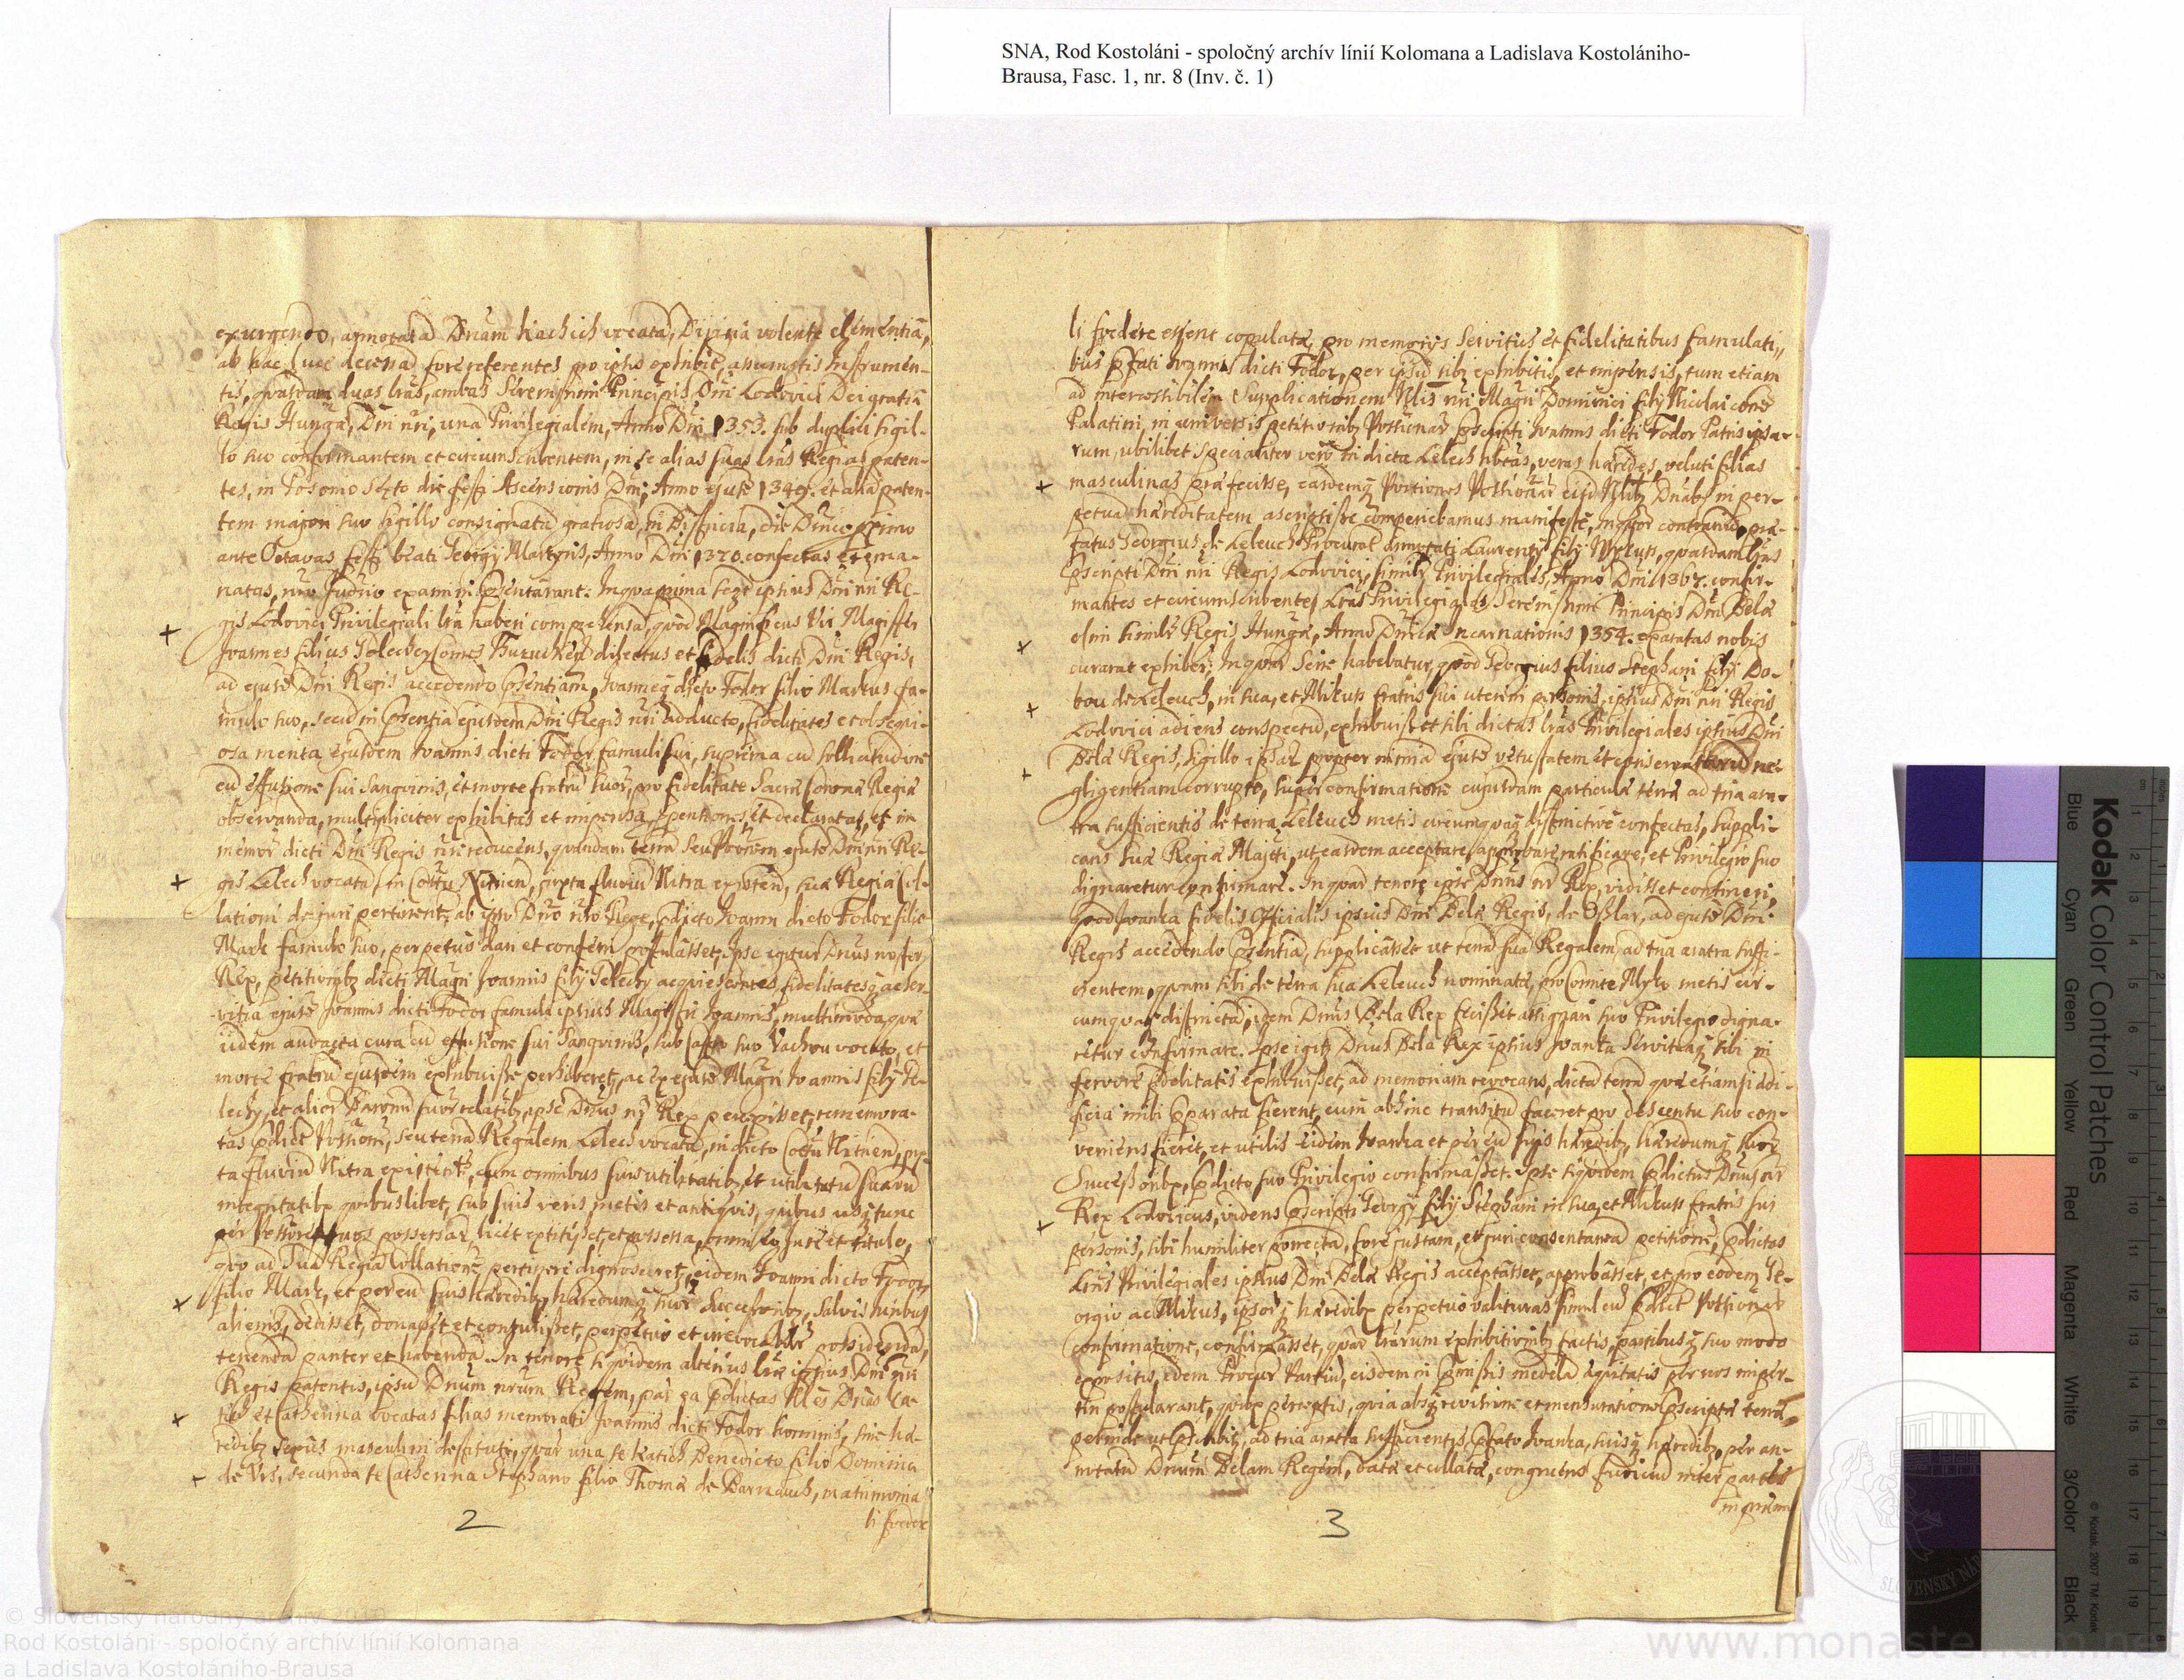 SNA, Rod Kostoláni - spoločný archív línií Kolomana a Ladislava Kostolániho-
Brausa, Fasc. 1, nr. 8 (Inv. č. 1)
exurgendo, annotatã Dnãm Kachich vocatã, Divinã volente clementiã,
ab hac luce decessã fore referentes pro ipso exhibit, assumptis Instrumen-
tis, quasdam duas lrãs, ambas Serenissimi Principis Dni Lodovici Dei gratiã
Regis Hungã, Dni nri, una Privilegialem, Anno Dni 1353. sub duplici sigil-
lo suo confirmantem et circumscribentem, in se alias suas lrãs Regias paten-
tes, in Posomo die festi Ascensionis Dni, Anno ejusd 1349. et alia paten-
tem majori suo sigillo consignatã gratiosã, in Bistricia, die
ante Octavas festi beati Georgÿ Martyris, Anno Dni 1370. confectas et ema-
natas, nro Judicio examini psentarant. In quar prima ipsius Dni nri Re-
gis Lodovici Privilegiali lra haberi comprehensã, quòd Magnificus Vir Magister
Joannes filius Gelechy Comes dilectus et fidelis dicti Dni Regis,
ad ejusd Dni Regis accedendo psentiam, Joanneq dicto Fodor filio Markus fa-
mulo suo, secũ in psentia ejusdem Dni Regis nri adducto, fidelitates et obsequi-
osa merita ejusdem Joannis dicti Fodor famuli sui, suprema cũ sollicitudine
cũ effusione sui Sanguinis, et morte fratrũ suor, pro fidelitate Sacra Corona Regia
observanda, multipliciter exhibitas et impensa, et declaratas, et in
memor dicti Dni Regis nri reducens, quandam terrã seu Possionem ejusd Dni nri Re-
gis Lelech vocatã, in Cottu Nitrien, juxta fluviũ Nitra existen, sua Regia Col-
lationi de juri pertinent, ab ipso Dno nro Rege, pdicto Joanni dicto Fodor filio
Mark famulo suo, perpetuò dari et conferri postulasset, Ipse igitur Dnus noster
Rex, petitionibz dicti Magri Joannis filÿ Gelechy acquiescentes, fidelitatesq ac ser-
vitia ejusd Joannis dicti Fodor famuli ipsius Magistri Joannis, multimoda, quæ
iidem cura cũ effusione sui Sanguinis, sub Castro suo Vachou vocato, et
morte fratrũ ejusdem exhibuisse perhiberet, ac ex ejusd Magri Joannis filÿ Ge-
lechy, et alior Baronũ suor relatibz, ipse Dnus nr Rex percepisset, rememora-
tas pdict Possioni, seu terrã Regalem Lelech vocatã, in dicto Cottu Nitrien, jux-
ta fluviũ Nitra existent, cum omnibus suis utilitatibz et utilitatũ suarũ
integritatibz quibuslibet, sub suis veris metis et antiquis, quibus usq tunc
per possessar, licèt extitisset, et possessa, omni eo jure et titulo,
quo ad Suã Regiã Collationẽ pertinere dignosceret, eidem Joanni dicto Fodor
filio Mark, et per eũ suis hæredibz, hæredumq suor Successoribz, Salvis Juribus
alienis, dedisset, donasset et contulisset, perpetuò et irrevocabilr possidendã,
tenendã pariter et habendã. In tenore siquidem alterius lræ ipsius Dni nri
Regis patentis, ipsũ Dnum nrum Regem, pdictas Nles Dnãs Ca-
tich et Catherina vocatas filias memorati Joannis dicti Fodor hominis, sine hæ-
redibz sexus masculini destituti, quar una se Katich Benedicto filio Dominici
de Vrs, secunda se Catherina Stephano filio Thomæ de Barnauch, matrimonia-
li foedere
2
li foedere essent copulatæ, pro memorÿs Servitÿs et fidelitatibus famulati-
bus pfati Joannis dicti Fodor, per ipsũ sibi exhibitis, et impensis, tum etiam
ad Supplicationem Nlis nri Magri Dominici filÿ Nicolai cond
Palatini, in universis petitionibz Possionar pscripti Joannis dicti Fodor Patris ipsa-
rum, ubilibet specialiter verò in dicta Lelech hbitas, veras hæredes, veluti filias
masculinas præfecisse, easdemq Portiones Possionar eisd Nlibz Dnabz in per-
petuã hæreditatem ascripsisse comperiebamus manifestè, in quor contrariũ præ-
fatus Georgius de Leleuch Procurat annotati Laurentÿ filÿ Mykus, quasdam lrãs
pscripti Dni nri Regis Lodovici, similr Privilegiales, Anno Dni 1367. confir-
mantes et circumscribentes Lrãs Privilegiales Serenissimi Principis Dni Belæ
olim similr Regis Hungã, Anno Dnicæ Incarnationis 1354. exaratas nobis
curarat exhiberi; In quar Serie habebatur, quòd Georgius filius Stephani filÿ Do-
bou de Leleuch, in sua, et Mikus fratris sui uterini personis, ipsius Dni nri Regis
Lodovici adiens conspectũ, exhibuisset sibi dictas lrãs Privilegiales ipsius Dni
Belæ Regis, sigillo ipsar propter nimiã ejusd vetustatem et conservantiũ ne-
gligentiam corrupto, super confirmatione cujusdam particulæ terræ ad tria ara-
tra sufficientis de terra Leleuch metis circumquaq distinctivè confectas, suppli-
cans suæ Regiæ Majeti, ut easdem acceptare, approbare, ratificare, et Privilegio suo
dignaretur confirmare. In quar tenore ipse Dnus nr Rex, vidisset contineri,
quod Joanka fidelis Officialis ipsius Dni Belæ Regis, de Oßlar, ad ejusd Dni
Regis accedendo psentiã, supplicasset ut terrã suã Regalem, ad tria aratra suffi-
cientem, quam sibi de terra sua Leleuch nominatã, pro Comite Myko metis cir-
cumquaq distinctã, idem Dnus Bela Rex fecisset assignari suo Privilegio digna-
retur confirmare. Ipse igitr Dnus Bela Rex ipsius Joanka servitiaq sibi in
fervore fidelitatis exhibuisset, ad memoriam revocans, dictã terrã quæ etiamsi
ficia inibi pparata fierent, cum abhinc transitũ faceret pro descensu suo con-
veniens fieret, et utilis eidem Joanka et per eũ suis hæredibz, hæredumq suor
Successoribz, pdicto suo Privilegio confirmasset. Ipse siquidem pdictus Dnus nr
Rex Lodovicus, videns pscripti Georgÿ filÿ Stephani in sua, et Mikus fratris sui
personis, sibi humiliter porrectã, fore justam, et juri consentaneã petitionẽ, pdictas
Lrãs Privilegiales ipsius Dni Belæ Regis acceptasset, approbasset, et pro eodem Ge-
orgio ac Mikus, ipsorq hæredibz perpetuò valituras simul cũ pdict Possionar
confirmatione, confirmasset, quar lrarum exhibitionibz factis, partibusq suo modo
expositis, idem Procur Partiũ, eisdem in pmissis medelã æquitatis per nos imper-
tiri postularant, quibz perceptis, quia absq revisione et mensuratione pscriptæ terræ,
perinde ut pfertur, ad tria aratra sufficientis pfato Joanka, suisq hæredibz, per an-
notatũ Dnum Belam Regem, datæ et collatæ, congruens Judiciũ inter partes
in pmissis
3
Kodak Color Control Patches
Blue Cyan Green Yellow Red Magenta White 3/Color Black
© Kodak, 2007 TM: Kodak
© Slovenský národný archív 2010
Rod Kostoláni - spoločný archív línií Kolomana
a Ladislava Kostolániho-Brausa
www.monasterium.net